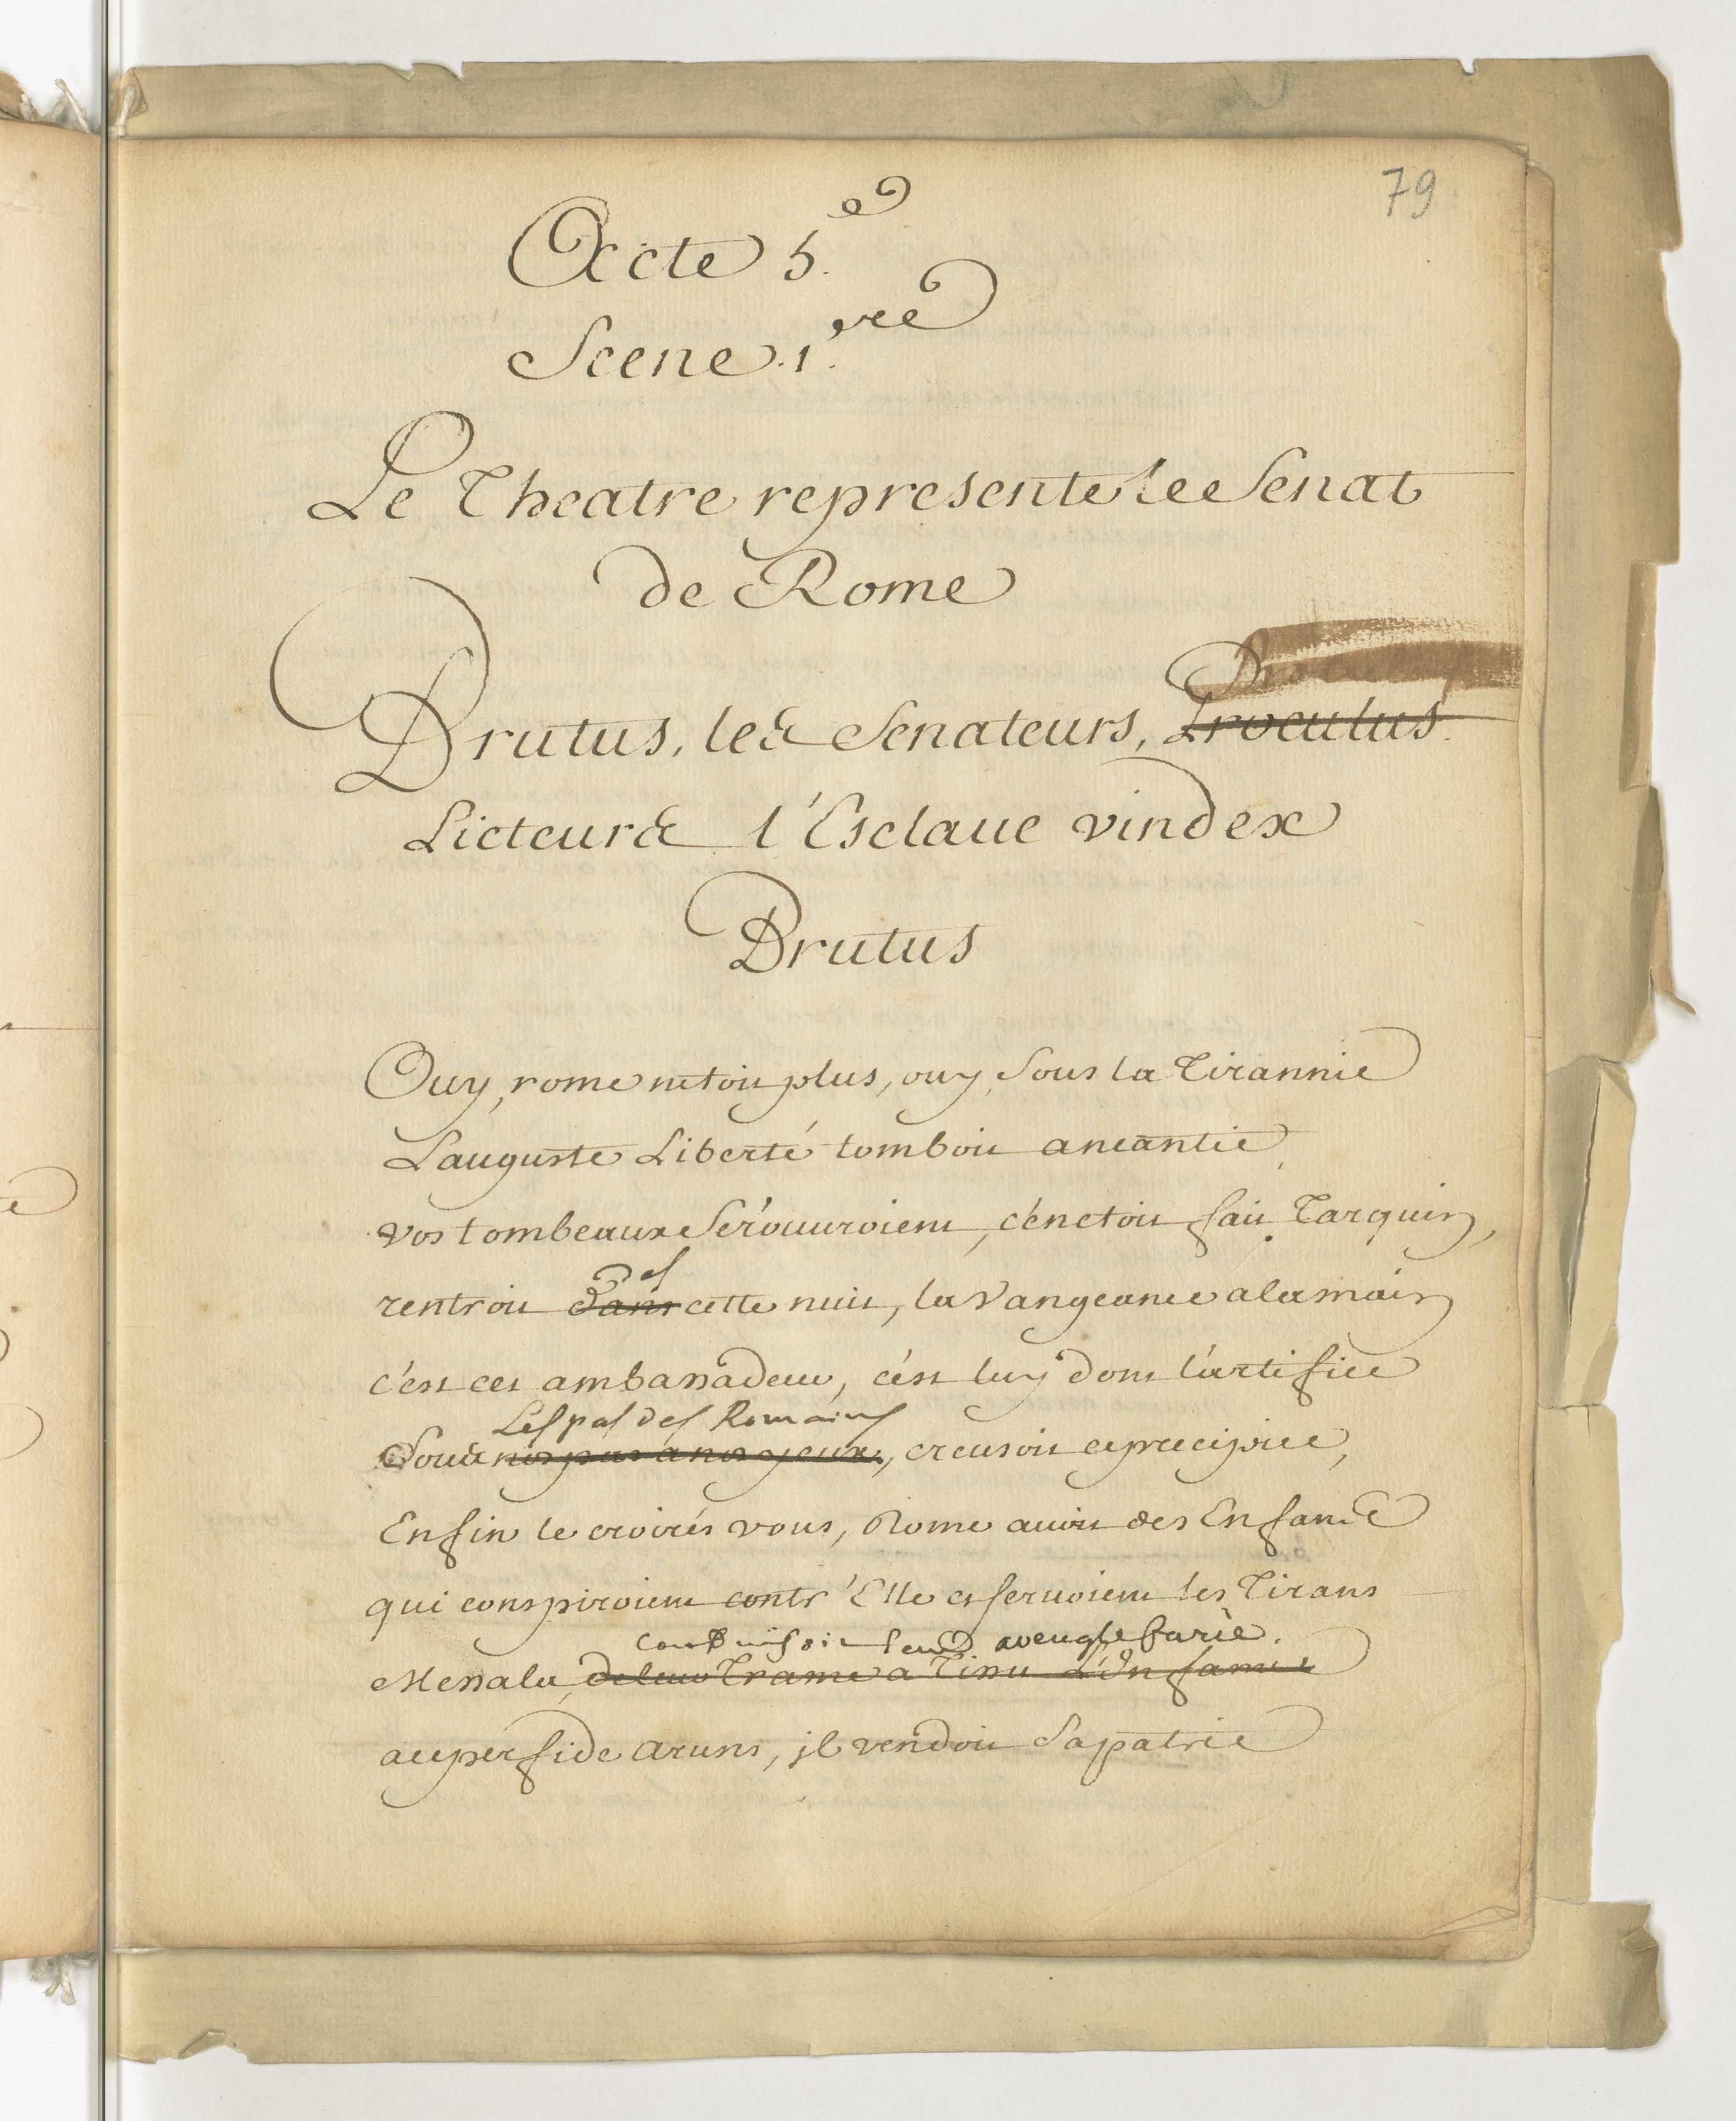 79
Acte 5.e
Scene 1.re
Le Theatre represente le Senat
de Rome
Proculus
Brutus, les Senateurs, Proculus.
Licteurs l'Esclaue vindex
Brutus
Ouy, rome netoit plus, ouy, sous la Tirannie
Lauguste Liberté tomboit aneantie,
vos tombeaux se r'ouuroient, c'en etoit fait, Tarquin,
des
rentroit dans cette nuit, la Vangeance a la main
c'est cet ambassadeur, c'est luy dont l'artifice
Les pas des Romains
Sous nos pas a nos yeux, creusoit ce precipice,
Enfin le croirés vous, Rome auoit des Enfans
qui conspiroient contr'Elle et seruoient les Tirans
conduisoit leur aveugle furie.
Messala de leur Trame a Tissu L'Infamie
au perfide aruns, il vendoit sa patrie